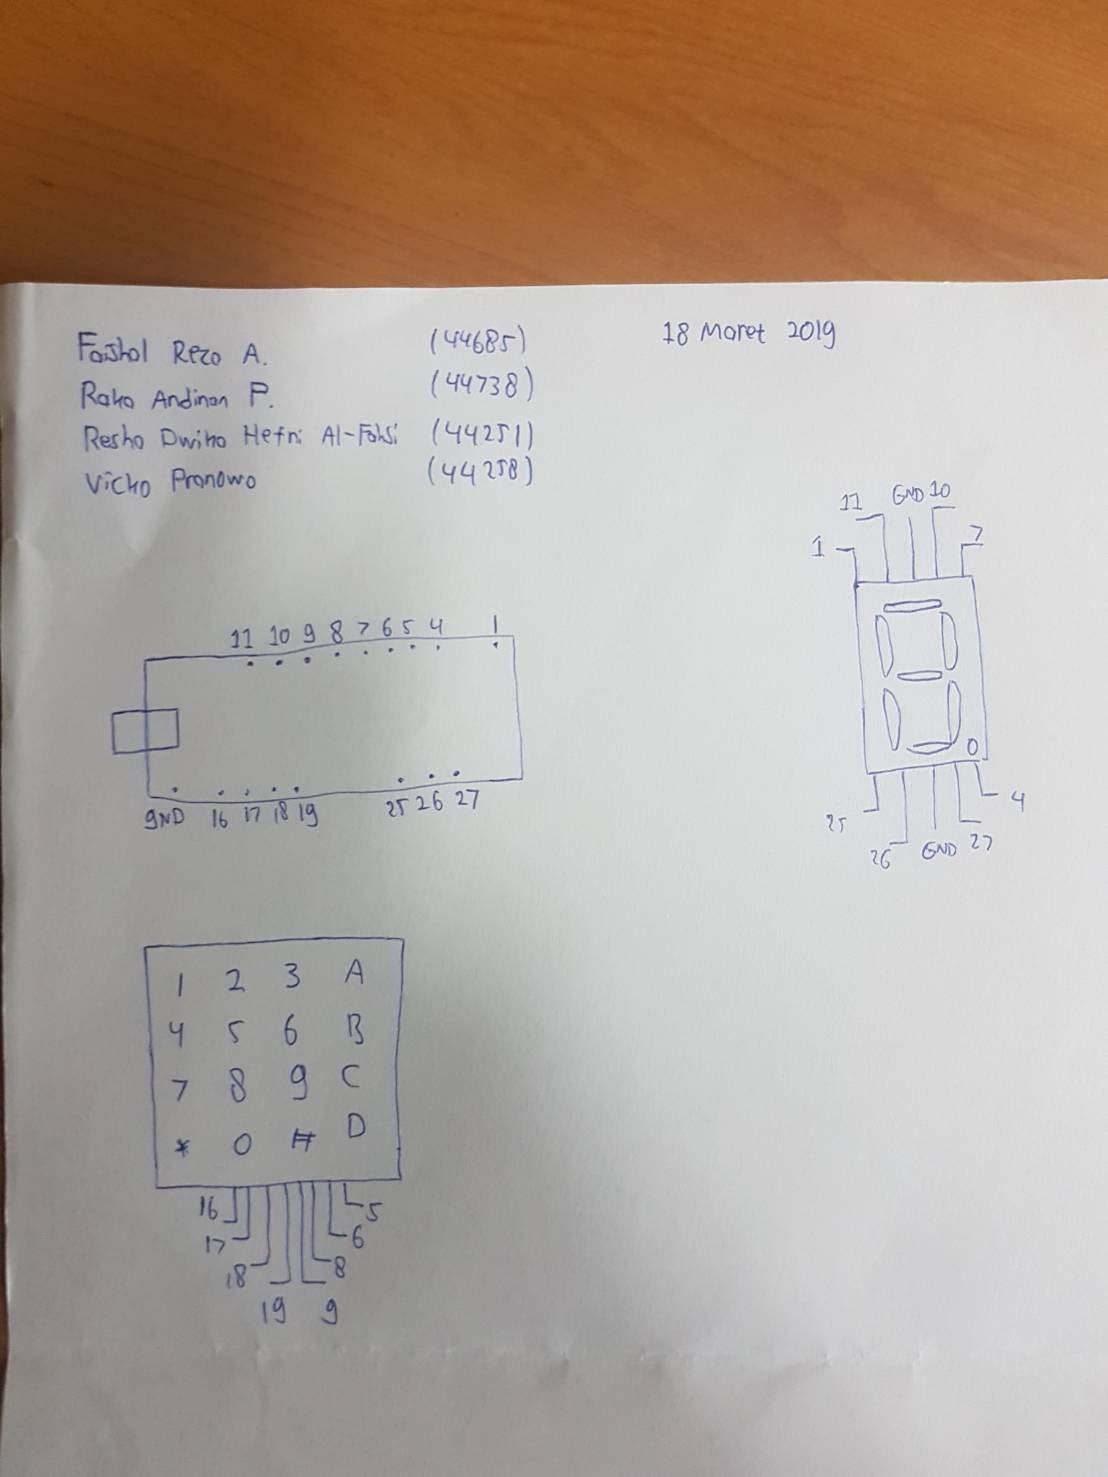 Faishol Reza A. (44685)
18 Maret 2019
Raka Andinan P. (44738)
Resha Dwika Hefni Al-Fahsi (44251)
Vicko Pranowo (44258)
11 GND 10
1 7
11 10 9 8 7 6 5 4 1
GND 16 17 18 19 25 26 27
25 4
26 GND 27
1 2 3 A
4 5 6 B
7 8 9 C
* 0 # D
16 5
17 6
18 8
19 9